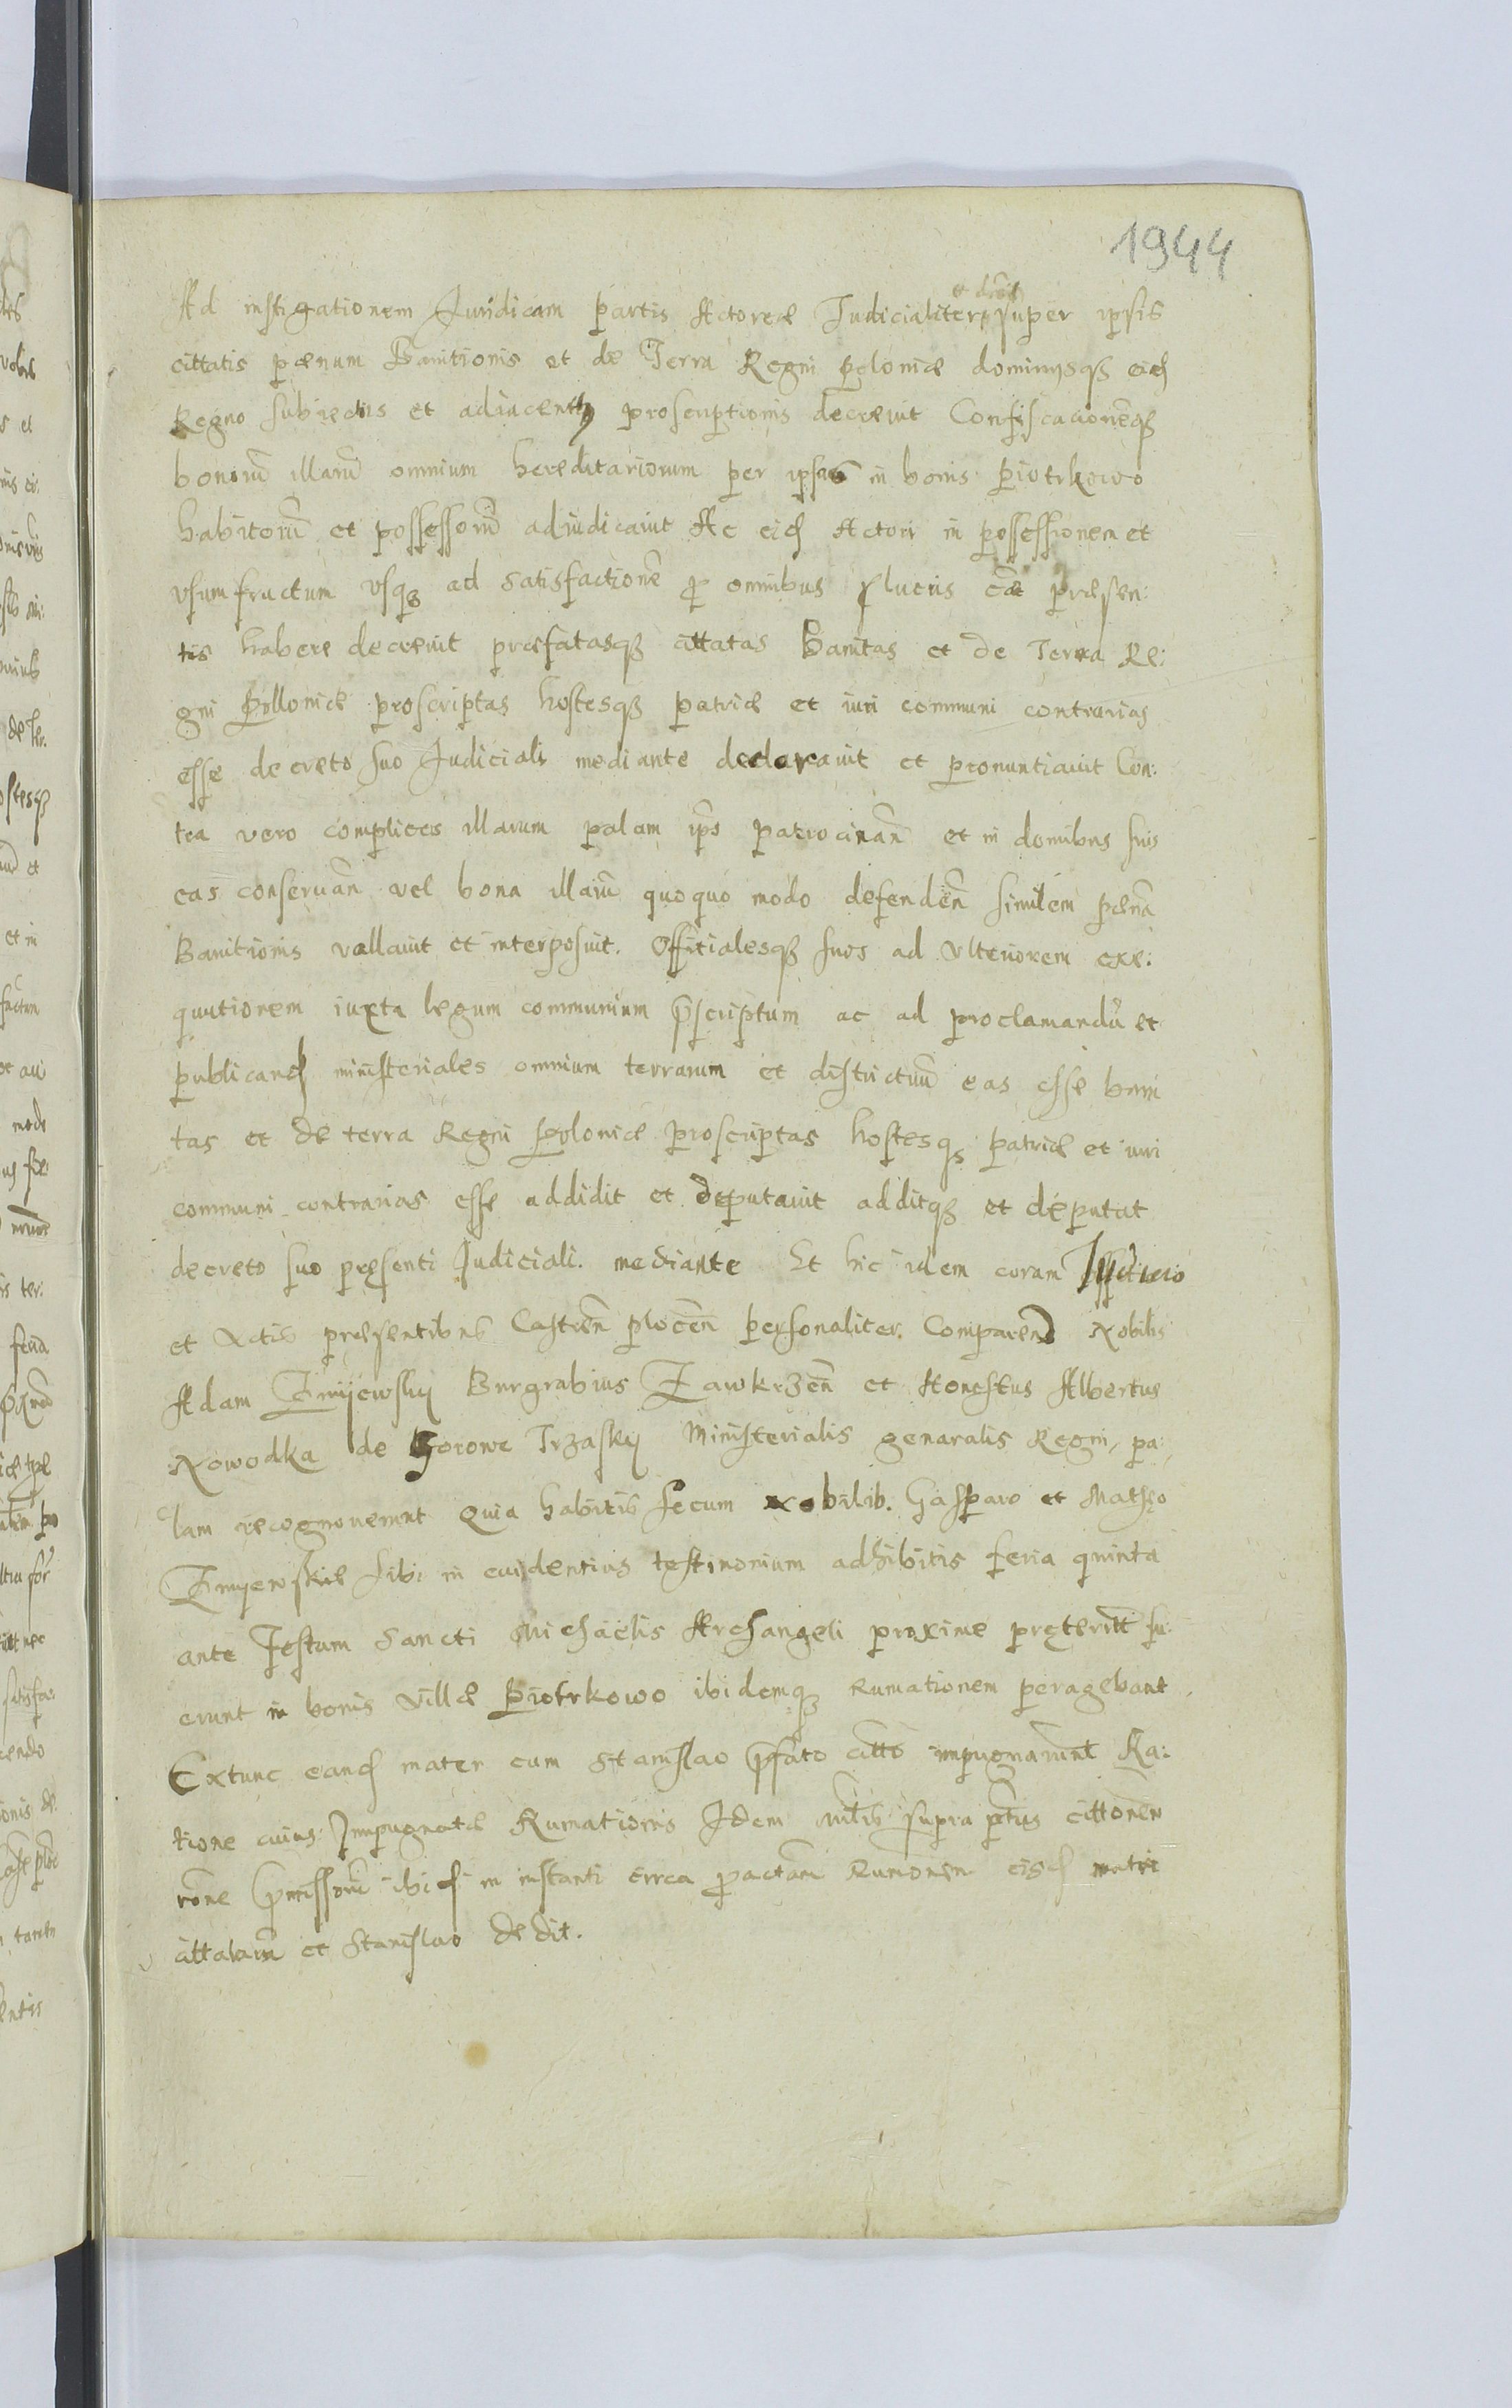 1944
et
Ad instigationem Juridicam partis Actoreæ Judicialiter super ipsis
cittatis pœnam Banitionis et de Terra Regni Poloniæ dominysqȝ
Regno subiectis et adiacentibȝ proscriptionis decrevit Confiscationēqȝ
bonorū illarū omnium hereditariorum per ipsas in bonis Piotrkowo
habitorū et possessorū adiudicavit Ac eid Actori in possessionem et
vsumfructum vsqȝ ad satisfactionē p omnibus lucris præsen:
tis habere decrevit præfatasqȝ cittatas Banitas et de Terra Re:
gni Polloniæ proscriptas hostesqȝ patriæ et iuri communi contrarias
esse decreto suo Judiciali mediante declaravit et pronuntiavit Con:
tra vero complices illarum palam ips patrocinan et in domibus suis
eas conservan vel bona illarū quoquo modo defenden similem pœnā
Banitionis vallavit et interposuit. Officialesqȝ suos ad vlteriorem exe:
quutionem iuxta legum communium pscriptum ac ad proclamandū et
publicand ministeriales omnium terrarum et districtuū eas esse bani
tas et de terra Regni Poloniæ proscriptas hostesqȝ patriæ et iuri
communi contrarias esse addidit et deputavit additqȝ et deputat
decreto suo præsenti Judiciali. mediante Et hic idem coram Officio
et Actis præsentibus Castren plocen personaliter. Comparen Nobilis
Adam Zmijewsky Burgrabius Zawkrzen et Honestus Albertus
Nowodka de Gorowe Trzasky Ministerialis genaralis Regni, pa:
lam recognoverunt Quia habitis secum nobilib. Gasparo et Mathęo
Zmyewskie sibi in evidentius testimonium adhibitis feria quinta
ante Festum Sancti Michaëlis Archangeli proxime præteritt fu:
erunt in bonis Villæ Piotrkowo ibidemqȝ Rumationem peragebant
Extunc eand mater cum Stanislao pfato citto impugnarunt Ra:
tione cuius Impugnatæ Rumationis Idem supra cittonem
rone pmissorū ibid in instanti circa pactam Rumonem eisd matri
cittatarū et Stanislao dedit.